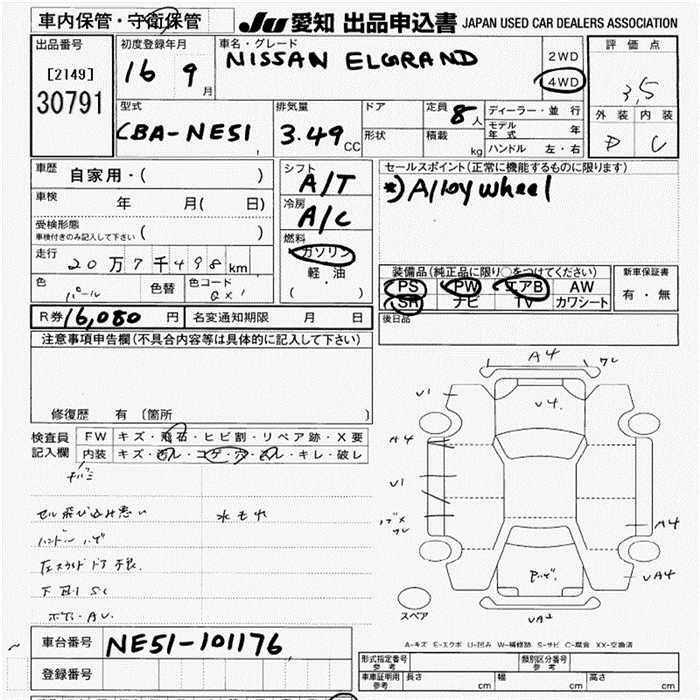 車内保管・守衛保管
JU 愛知 出品申込書 JAPAN USED CAR DEALERS ASSOCIATION
出品番号
[2149]
30791
初度登録年月
16 9月
車名・グレード
NISSAN ELGRAND
2WD
4WD
評価点
3,5
外装 内装
D C
型式
CBA-NE51
排気量
3.49 CC
ドア
形状
定員 8人
積載 kg
ディーラー・並行
モデル年式 年
ハンドル 左・右
車歴 自家用・( )
車検 年 月( 日)
受検形態
車検付きのみ記入して下さい ( )
走行 20万7千498km
色 パール 色替 色コード QX1
シフト
A/T
冷房
A/C
燃料
ガソリン
軽・油
( )
セールスポイント(正常に機能するものに限ります)
*)Alloy wheel
装備品(純正品に限り○をつけてください)
PS PW エアB AW
SR ナビ TV カワシート
新車保証書
有・無
後日品
R券 16,080円 名変通知期限 月 日
注意事項申告欄(不具合内容等は具体的に記入して下さい)
修復歴 有 〔箇所 〕
検査員記入欄
FW キズ・飛石・ヒビ割・リペア跡・X要
内装 キズ・コゲ・穴・キレ・破レ
セル飛び込み悪い 水もれ
A4
U4.
U1
A4
U1
A4
UA4
UA2
スペア
A-キズ E-エクボ U-凹み W-補修跡 S-サビ C-腐食 XX-交換済
車台番号 NE51-101176
登録番号
形式指定番号 参考
類別区分番号 参考
車庫証明用 参考 長さ cm 幅 cm 高さ cm